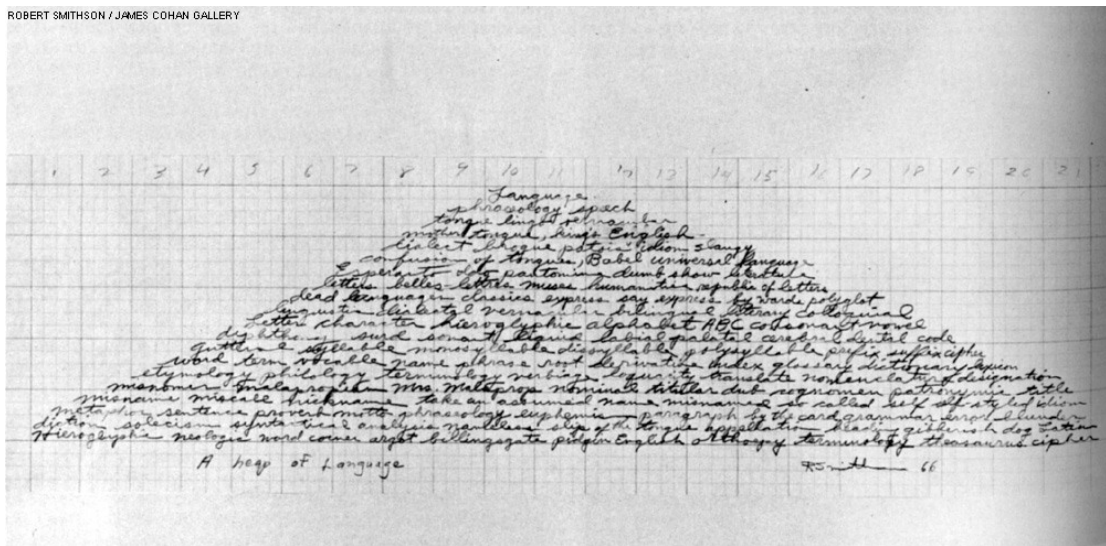 ROBERT SMITHSON / JAMES COHAN GALLERY
1 2 3 4 5 6 7 8 9 10 11 12 13 14 15 16 17 18 19 20 21
Language
phraseology speech
tongue lingo vernacular
mother tongue, king's English
dialect brogue patois idiom slangy
confusion of tongues, Babel universal language
Esperanto Ido pantomime dumb show literature
letters belles-lettres muses humanities republic of letters
dead languages classics express say express by words polyglot
linguistic dialectal vernacular bilingual literary colloquial
letter character hieroglyphic alphabet ABC consonant vowel
diphthong surd sonant liquid labial palatal cerebral dental code
guttural syllable monosyllable dissyllable polysyllable prefix suffix cipher
word term vocable name phrase root derivative index glossary dictionary lexicon
etymology philology terminology verbiage loquacity translate nomenclature designation
misnomer malapropism Mrs. Malaprop nominal titular dub cognomen patronymic title
misname miscall nickname take an assumed name misnamed so called self styled idiom
metaphor sentence proverb motto phraseology euphemism paragraph by the card grammar error blunder
diction solecism syntactical analysis nameless slip of the tongue appellation gibberish dog Latin
Hieroglyphic neologic word coiner argot billingsgate pidgin English orthoepy terminology thesaurus cipher
A heap of Language
RSmithson 66